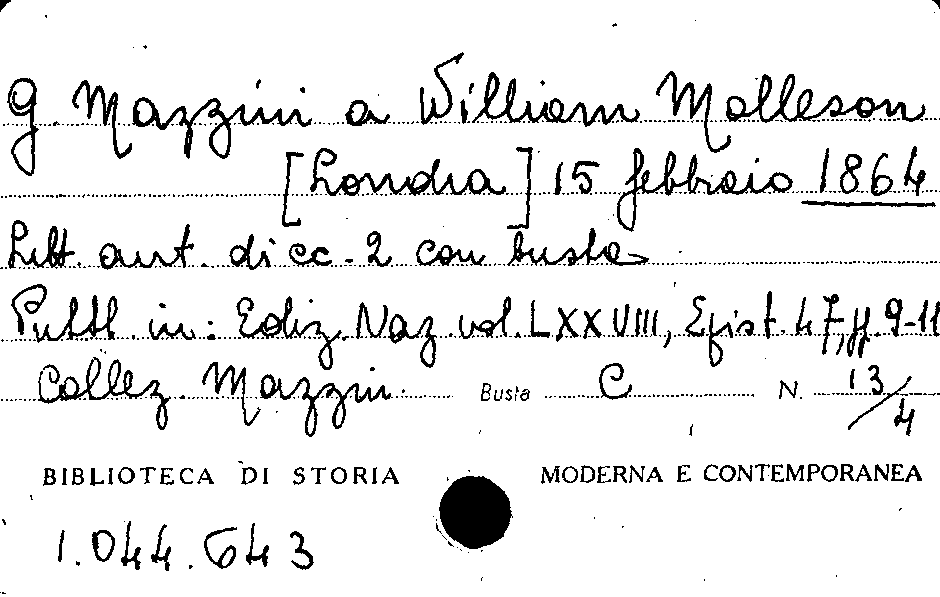 G. Mazzini a William Malleson
[Londra] 15 febbraio 1864
Lett. aut. di cc. 2 con busta
Pubbl. in: Ediz. Naz vol. LXXVIII, Epist. 47, pp. 9-11
Collez. Mazzini Busta C N. 13/4
BIBLIOTECA DI STORIA MODERNA E CONTEMPORANEA
1.044.643